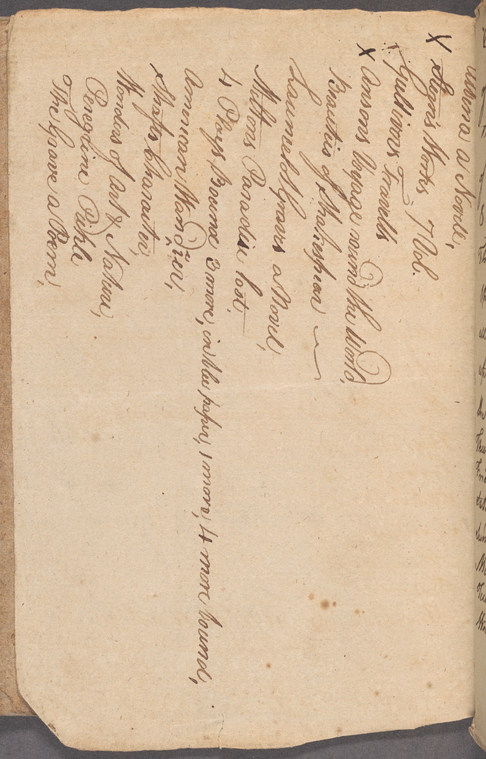 a Novel,
X Steprns Works 7 Vol.
X Gullivers Travells
X Ansons Voyage round the World,
Beauties of Shakespear
Launcelot Greaves a Novel,
Miltons Paradise lost,
4 Plays Bound 3 more, in blue paper, 1 more, 4 more bound,
American Magazine,
Characters,
Wonders of art & Nature,
Peregrine Pickle
The Grave a Poem,